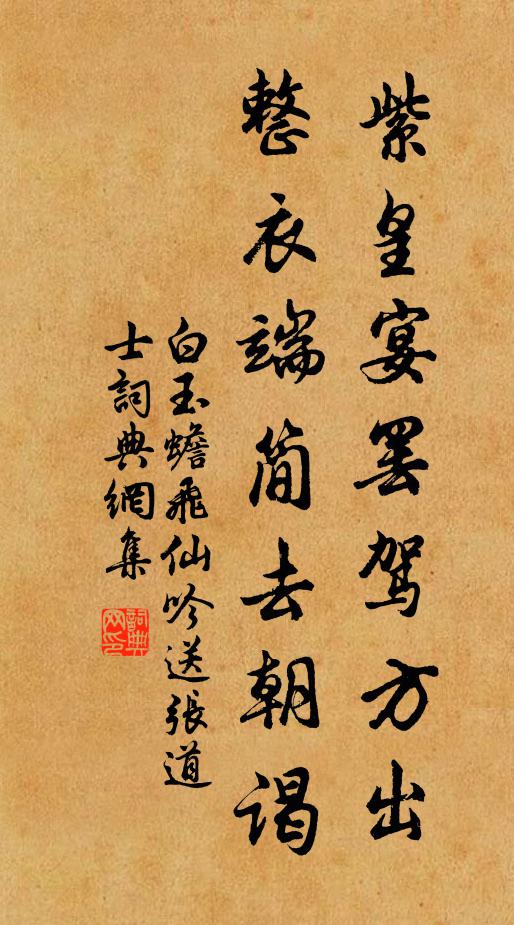 紫皇宴罷駕方出
整衣端簡去朝謁
白玉蟾飛仙吟送張道
士詞典網集
詞典
网印